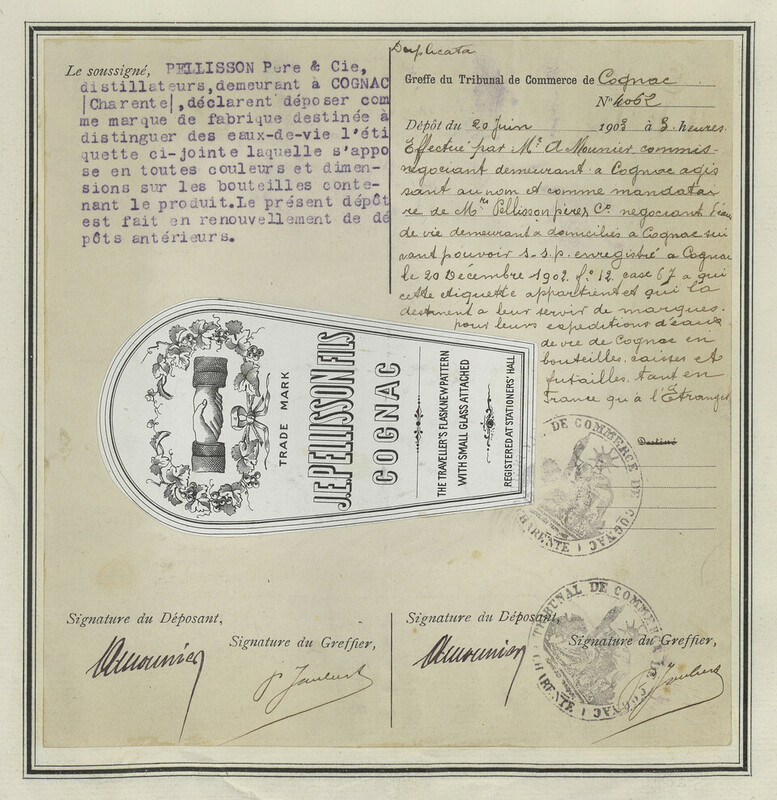 Le soussigné, PELLISSON Pere & Cie,
distillateurs,demeurant à COGNAC
|Charente|,déclarent déposer com
me marque de fabrique destinée à
distinguer des eaux-de-vie l'éti
quette ci-jointe laquelle s'appo
se en toutes couleurs et dimen-
sions sur les bouteilles conte-
nant le produit.Le présent dépôt
est fait en renouvellement de dé
pôts antérieurs.
Duplicata
Greffe du Tribunal de Commerce de Cognac
N° 4062
Dépôt du 20 Juin 1903 à 3 heures.
Effectué par Mr A Mounier commis-
negociant demeurant a Cognac agis
sant au nom et comme mandatai
re de Mrs Pellisson pères Co negociant d'eau
de vie demeurant & domiciliés a Cognac sui
vant pouvoir s.s.p. enregistré a Cognac
le 20 Décembre 1902 fo 12 case 67 a qui
cette etiquette appartient et qui la
destinent a leur servir de marques.
pour leurs expeditions d'eaux
de vie de Cognac en
bouteilles, caisses et
futailles, tant en
France qu'à l'Étranger
Destiné
TRADE MARK
J.E.PELLISSON FILS
COGNAC
THE TRAVELLER'S FLASK,NEW PATTERN
WITH SMALL GLASS ATTACHED
REGISTERED AT STATIONERS' HALL
DE COMMERCE DE COGNAC
(CHARENTE)
Signature du Déposant,
Signature du Greffier,
AMounier
P. Joubert
Signature du Déposant,
Signature du Greffier,
AMounier
P. Joubert
TRIBUNAL DE COMMERCE DE COGNAC
(CHARENTE)